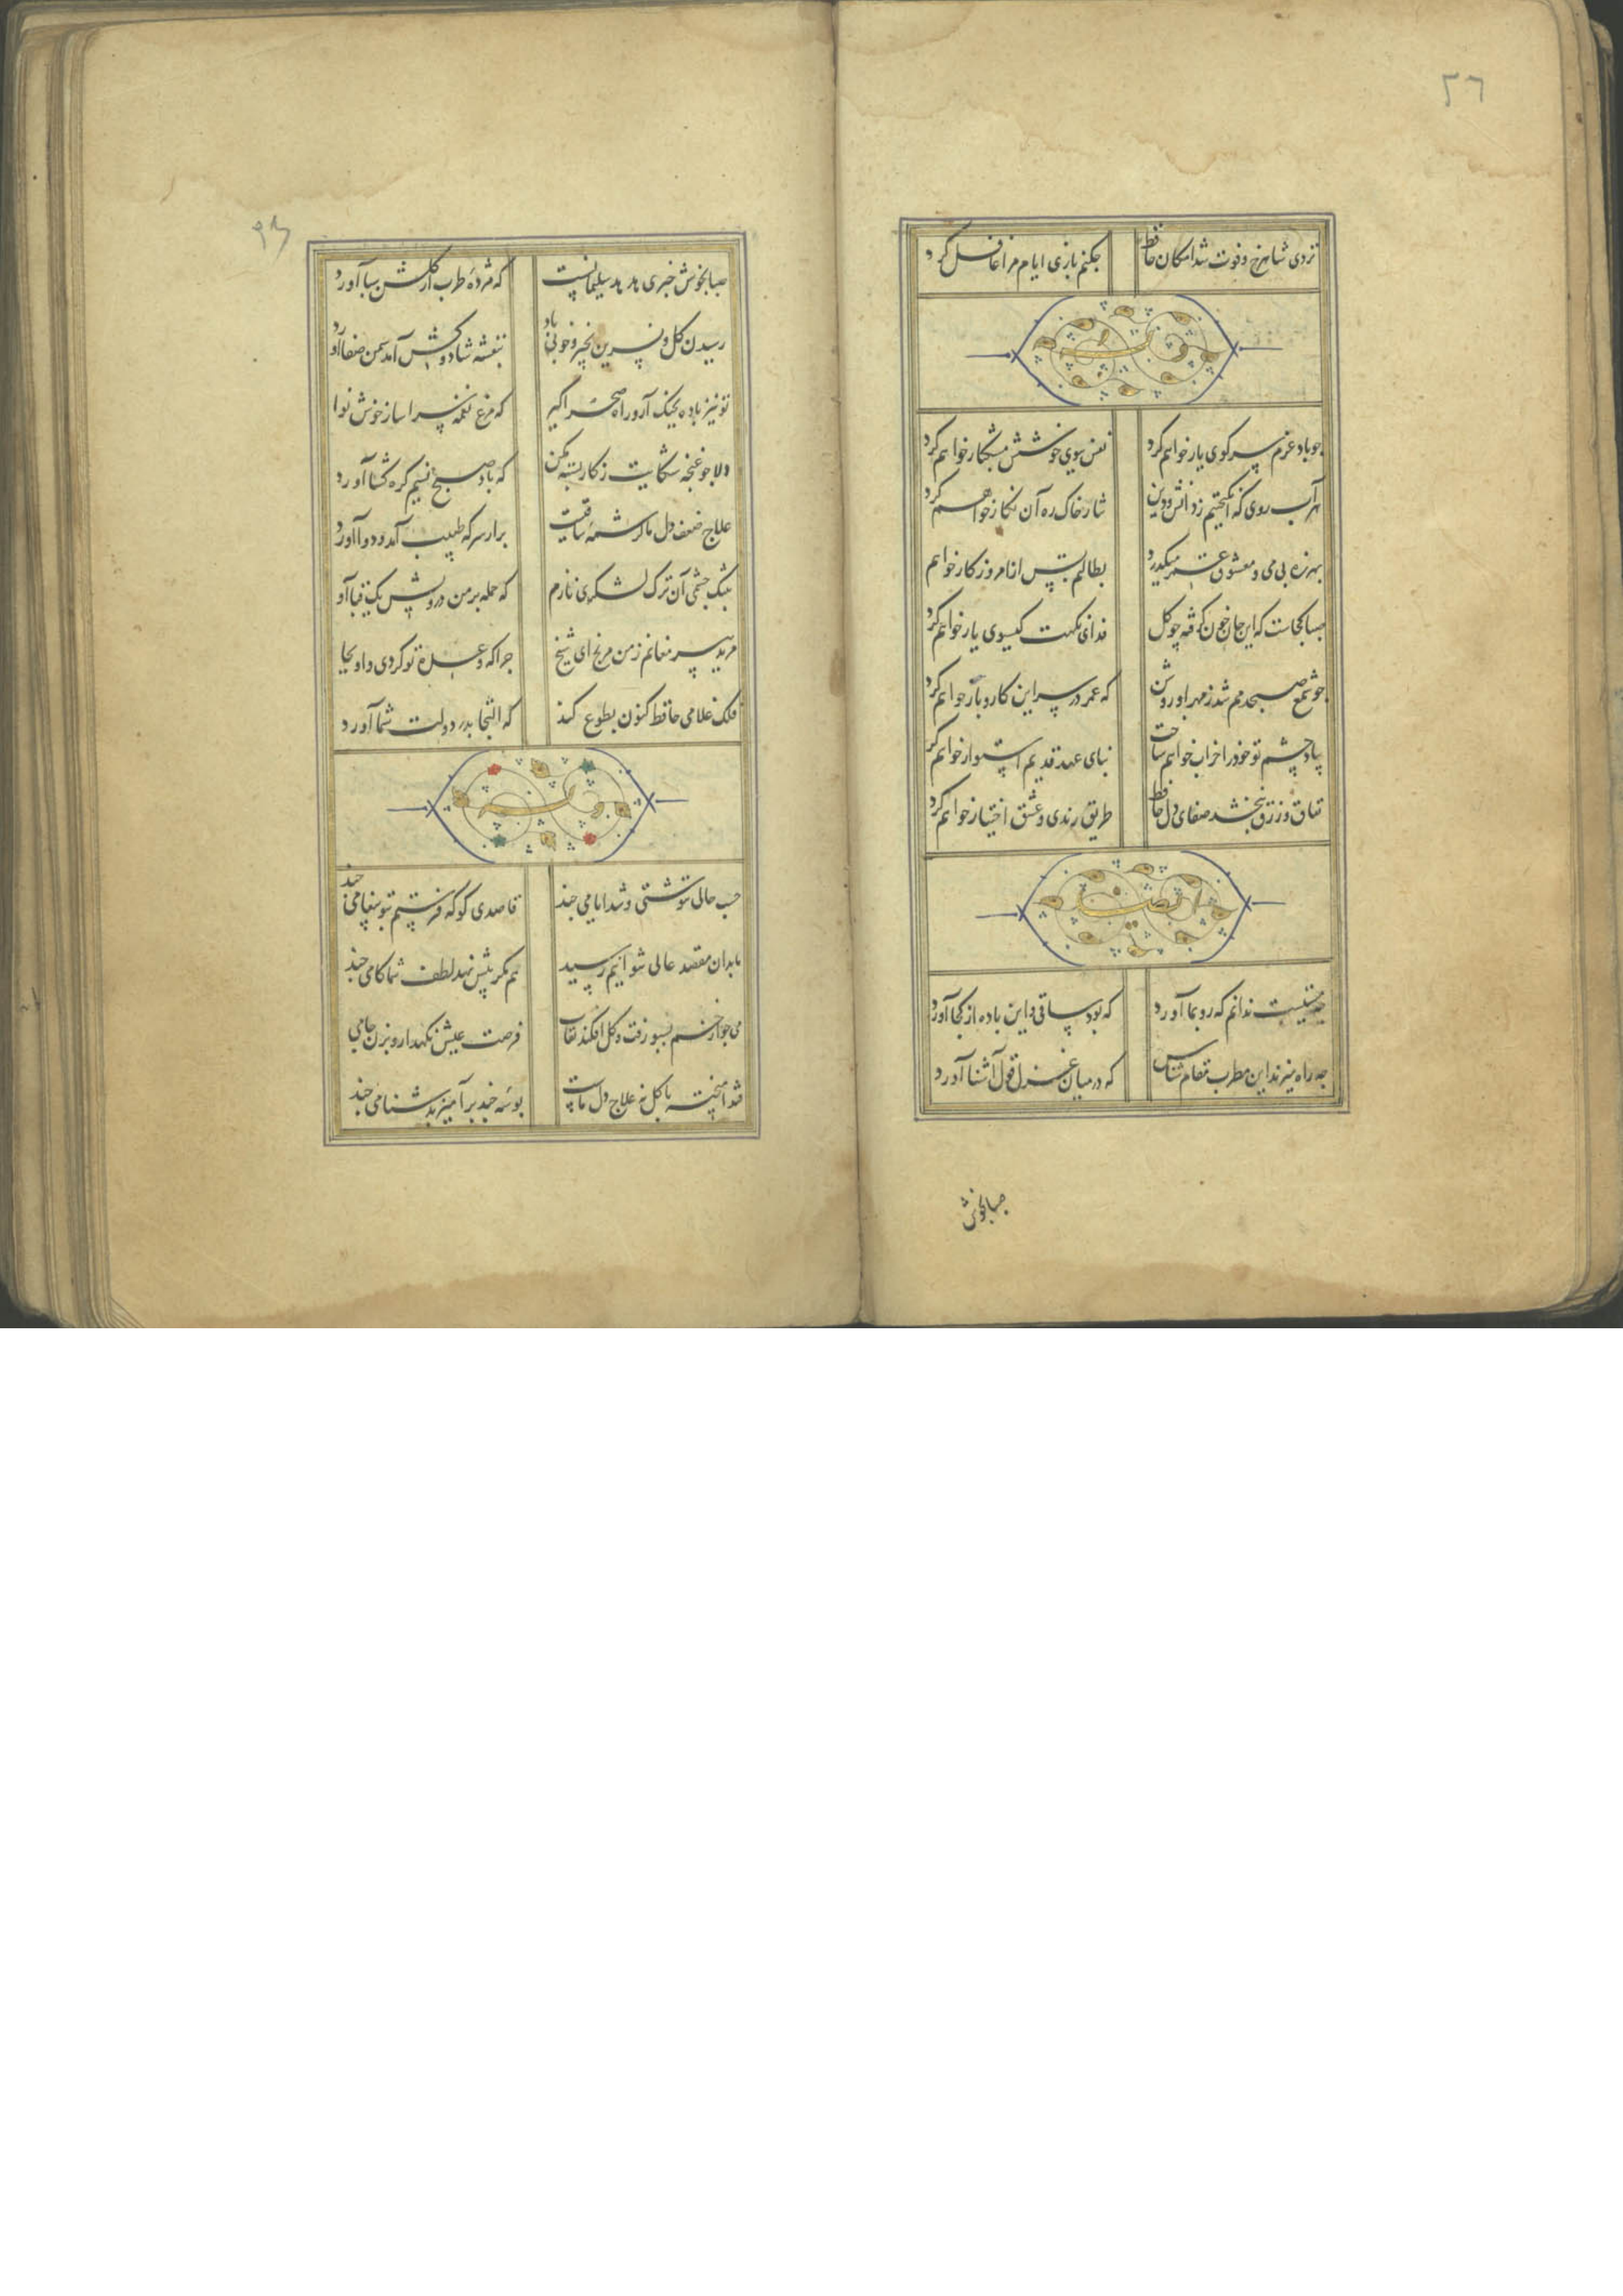 ٢٦
نزدی شاهرخ و فوت شد امکان حافظ
چکنم بازی ایام مرا غافل کرد
وله
چو باد عزم سر کوی یار خواهم کرد
نفس ببوی خوشش مشکبار خواهم کرد
هر آب روی که اندوختم ز دانش و دین
نثار خاک ره آن نگار خواهم کرد
بهرزه بی می و معشوق عمر میگذرد
بطالتم بس از امروز کار خواهم
صبا کجاست که این جان خون گرفته چو گل
فدای نکهت گیسوی یار خواهم کرد
چو شمع صبحدمم شد ز مهر او روشن
که عمر در سر این کار و بار خواهم کرد
بیاد چشم تو خود را خراب خواهم ساخت
بنای عهد قدیم استوار خواهم کرد
نفاق و زرق نبخشد صفای دل حافظ
طریق رندی و عشق اختیار خواهم کرد
ایضا
چه مستیست ندانم که رو بما آورد
که بود ساقی و این باده از کجا آورد
چه راه میزند این مطرب مقام شناس
که در میان غزل قول آشنا آورد
صبا بخوش
صبا بخوش خبری هدهد سلیمانست
که مژده طرب از گلشن سبا آورد
رسیدن گل و نسرین بخیر و خوبی باد
بنفشه شاد و کش آمد سمن صفا آورد
تو نیز باده بچنگ آر و راه صحرا گیر
که مرغ نغمه سرا ساز خوش نوا
دلا چو غنچه شکایت ز کار بسته مکن
که باد صبح نسیم گره گشا آورد
علاج ضعف دل ما کرشمه ساقیست
برار سر که طبیب آمد و دوا آورد
بتنگ چشمی آن ترک لشکری نازم
که حمله بر من درویش یک قبا آو
مرید پیر مغانم ز من مرنج ای شیخ
چرا که وعده تو کردی و او بجا
فلک غلامی حافظ کنون بطوع کند
که التجا بدر دولت شما آورد
وله
حسب حالی ننوشتی و شد ایامی چند
قاصدی کو که فرستم بتو پیغامی چند
ما بدان مقصد عالی نتوانیم رسید
هم مگر پیش نهد لطف شما کامی چند
می چو از خم بسبو رفت و گل افکند نقاب
فرصت عیش نگهدار و بزن جامی
قند آمیخته با گل نه علاج دل ماست
بوسه چند برآمیز بدشنامی چند